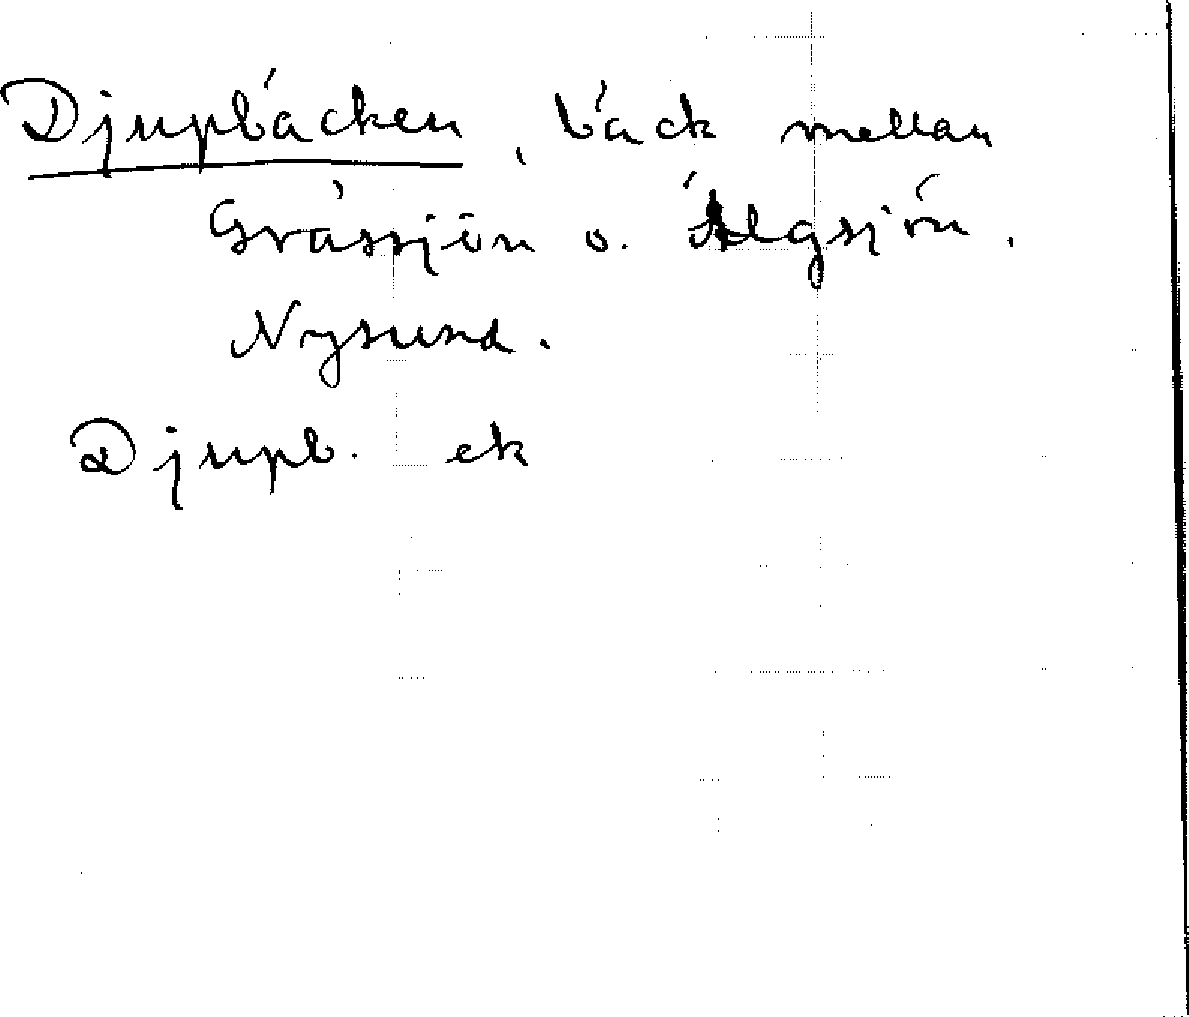 Djupbäcken, bäck mellan
Grässjön o. Älgsjön.
Nysund.
Djupb. ek